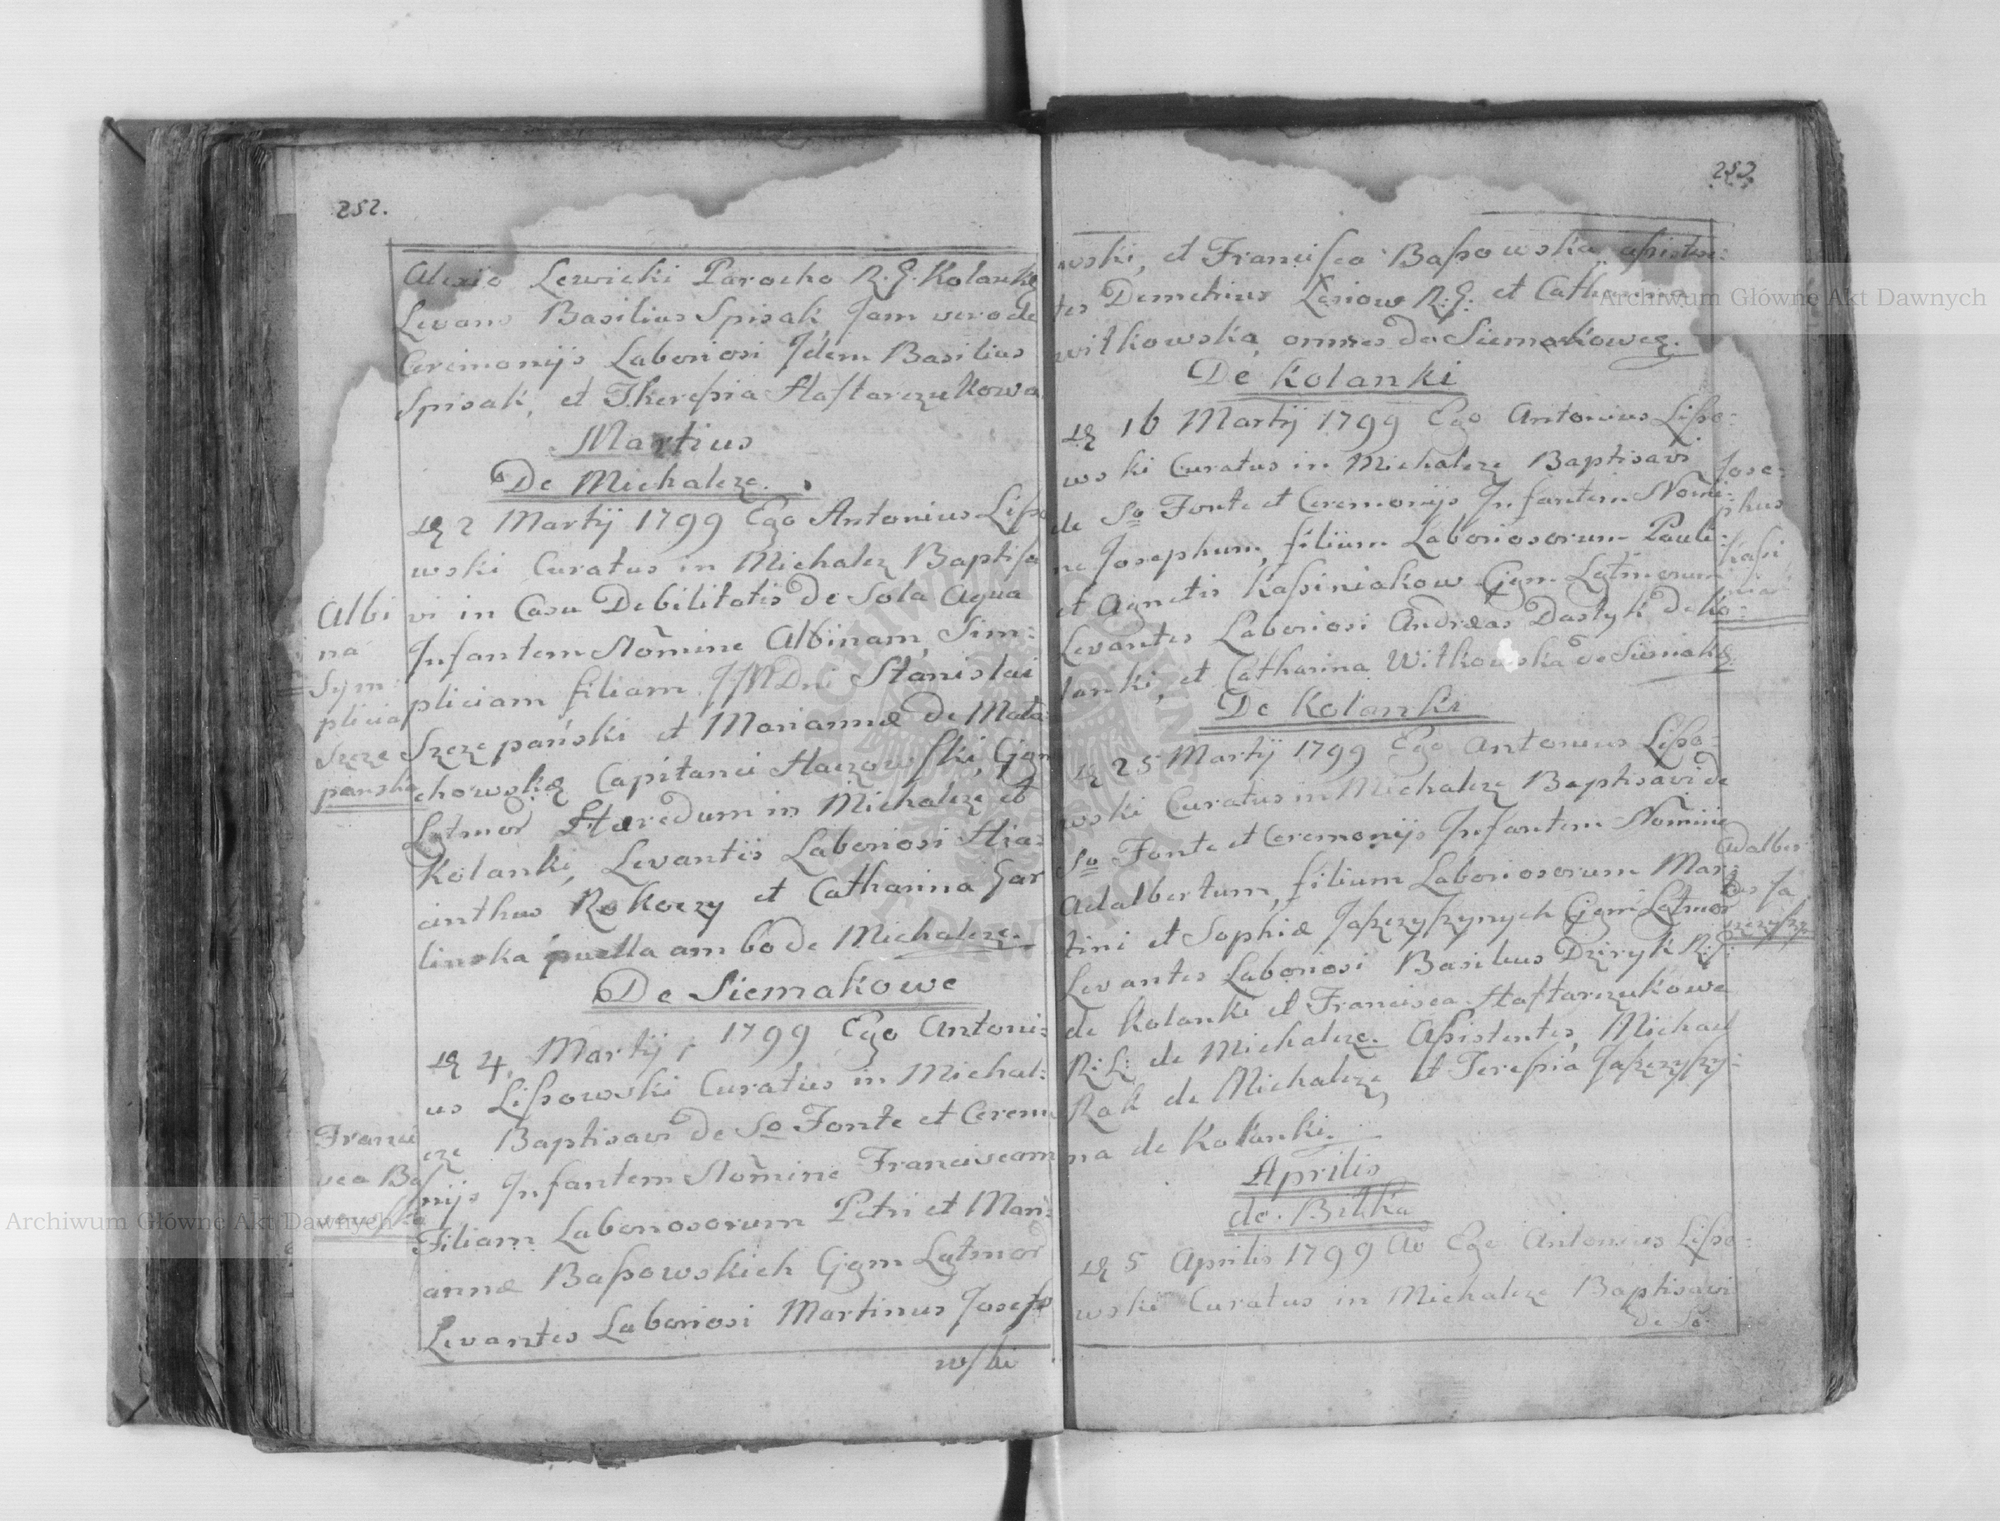 252.
Alexio Lewicki Parocho R. G. Kolankę
Levans Basilius Spisak, Jam vero de
Ceremonijs Laboriosi Jdem Basilius
Spisak, et Theresia Haftarczukowa
Martius
De Michalcze.
D 2 Martij 1799 Ego Antonius Lisso
wski Curatus in Michalcz Baptisa
Albi
na
Sym
plicia
Szcze
pańska
vi in Casu Debilitatis de Sola Aqua
Infantem Nomine Albinam, Sim:
pliciam filiam JMDni Stanislai
Szczepański et Mariannæ de Mala
chowskę Capitanei Haczowski, Ggm
Lgtmor Hæredum in Michalcze et
Kolanki, Levantes Laboriosi Hia:
cinthus Rokoczy et Catharina Gar
linska puella ambo de Michalcze.
De Siemakowe
D 4. Martij, 1799 Ego Antoni:
us Lissowski Curatus in Michal:
cze Baptisavi de So Fonte et Cerem
Franci
sca Bas
sowska
nijs Infantem Nomine Franciscam
Filiam Laboriosorum Petri et Mari
annæ Bassowskich Ggm Lgtmor
Levantes Laboriosi Martinus Josefo
wski
253.
wski, et Francisca Bassowska assisten:
tes Demetrius Lesiow R: G. et Catharina
witkowska, omnes de Siemakowcz.
De Kolanki
D 16 Martij 1799 Ego Antonius Lisso:
wski Curatus in Michalcze Baptisavi
de So Fonte et Ceremonijs Infantem Nomi:
ne Josephum, filium Laboriosorum Pauli
et Agnetis Kasiniakow Ggm Lgtmorum
Levantes Laboriosi Andræas Dastyk de Ko:
lanki, et Catharina Witkowska de Siemakę.
Jose:
phus
Kasi
nia
De Kolanki
D 25 Martij 1799 Ego Antonius Lisso:
wski Curatus in Michalcze Baptisavi de
So Fonte et Ceremonijs Infantem Nomine
Adalbertum, filium Laboriosorum Mar:
tini et Sophiæ Jaszczyszynych Ggm Lgtmor
Levantes Laboriosi Basilius Dziryk R: G:
de Kolanki et Francisca Haftarczukowa
R: L: de Michalcze. Assistentes, Michael
Rak de Michalcze, et Teresia Jaszczyszy:
na de Kolanki.
Adalber
tus Ja
szczyszy
Aprilis
de. Bilka
D 5 Aprilis 1799 Ao Ego Antonius Lisso:
wski Curatus in Michalcze Baptisavi
de So
Archiwum Główne Akt Dawnych
Archiwum Główne Akt Dawnych